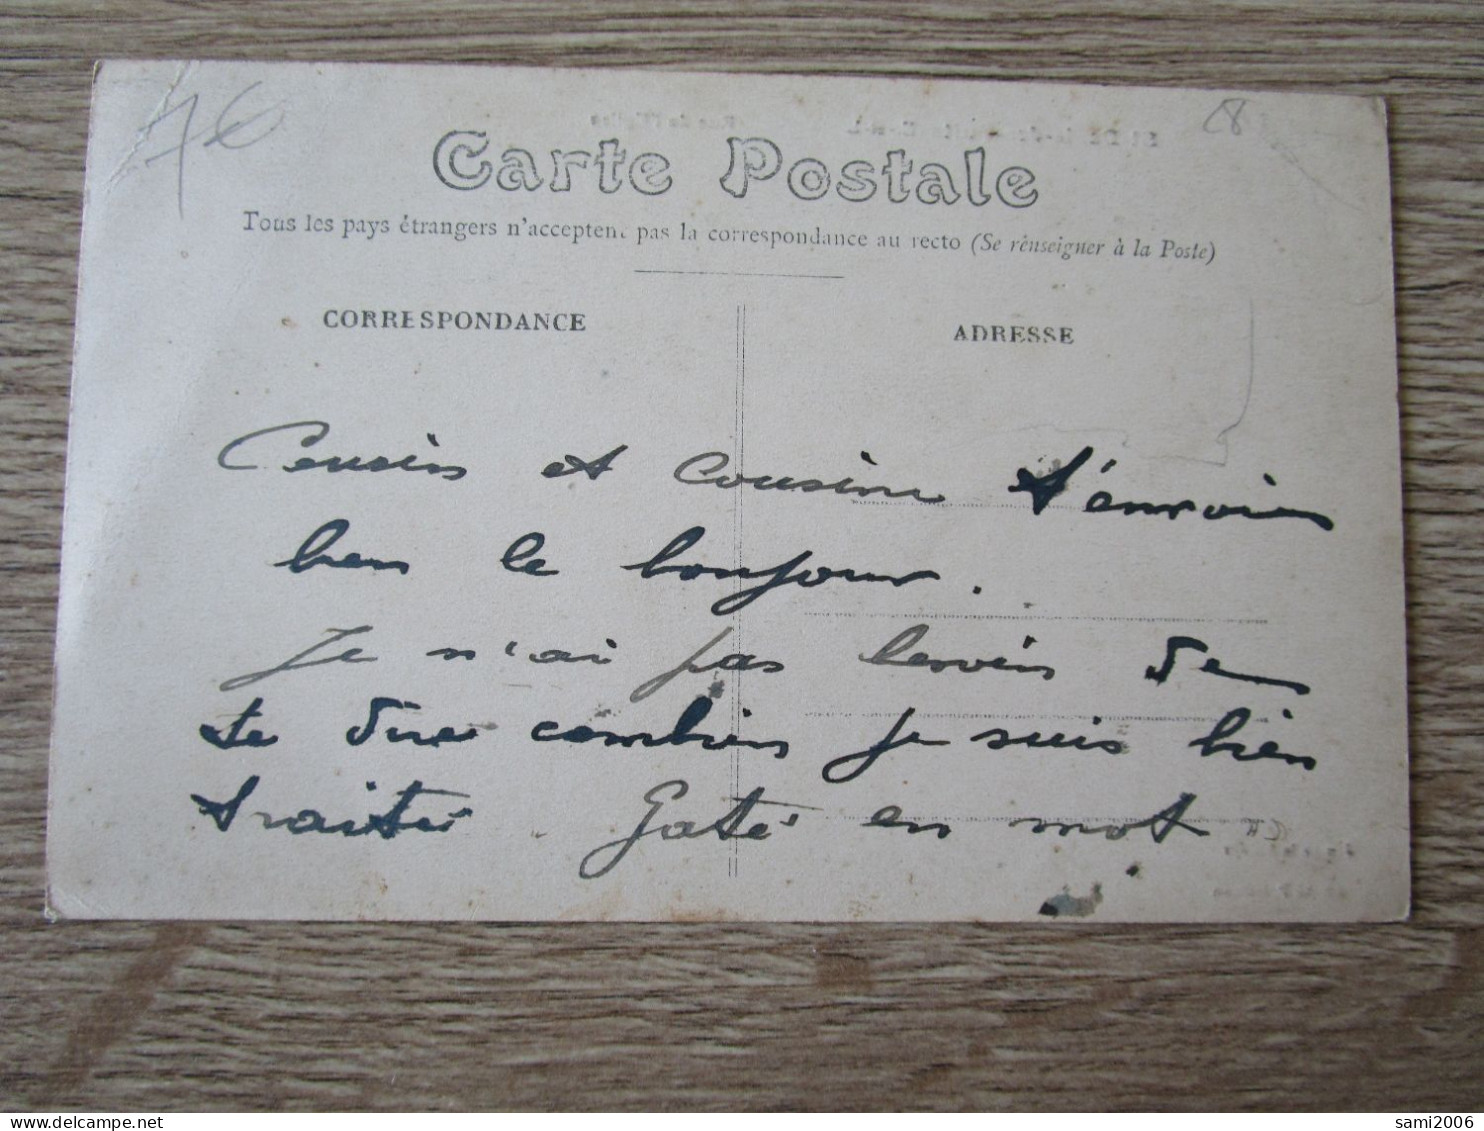 7€
C8
Carte Postale
Tous les pays étrangers n'acceptent pas la correspondance au recto (Se renseigner à la Poste)
CORRESPONDANCE
ADRESSE
Cousins et Cousine t'envoies
bien le bonjour.
Je n'ai pas besoin de
te dire combien je suis bien
traité Gaté en mot
sami2006